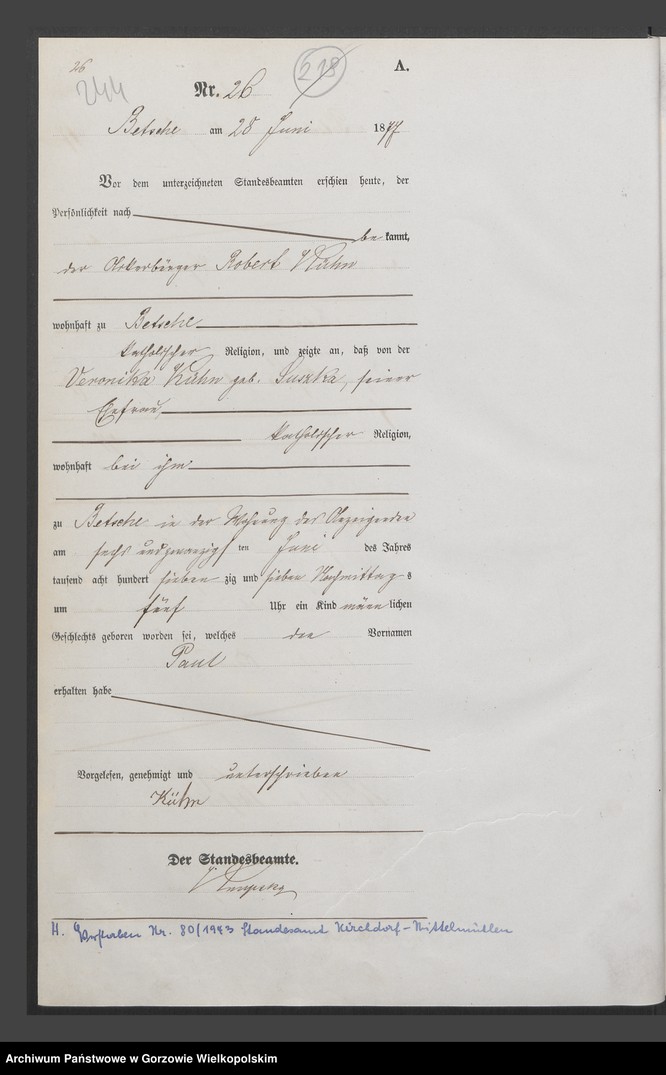 26
244
218
A.
Nr. 26
Betsche am 28 Juni 1877
Vor dem unterzeichneten Standesbeamten erschien heute, der
Persönlichkeit nach
be kannt,
der Ackerbürger Robert Kühn
wohnhaft zu Betsche
katholischer Religion, und zeigte an, daß von der
Veronika Kühn geb. Suszka, seiner
Ehefrau,
katholischer Religion,
wohnhaft bei ihm
zu Betsche in der Wohnung des Anzeigenden
am sechs und zwanzig ten Juni des Jahres
tausend acht hundert sieben zig und sieben Nachmittag s
um fünf Uhr ein Kind männ lichen
Geschlechts geboren worden sei, welches den Vornamen
Paul
erhalten habe
Vorgelesen, genehmigt und unterschrieben
Kühn
Der Standesbeamte.
H. Verstorben Nr. 80/1943 Standesamt Kirchdorf-
Archiwum Państwowe w Gorzowie Wielkopolskim